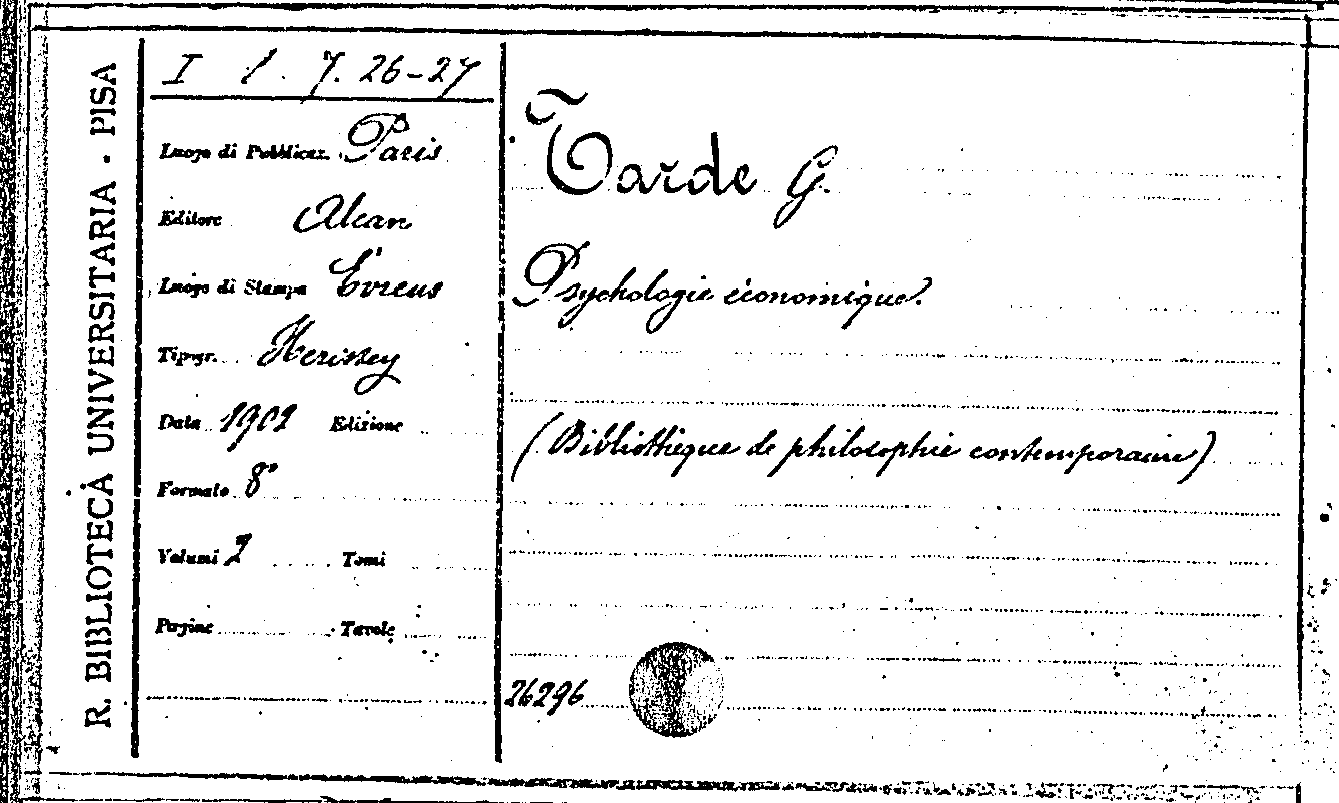 R. BIBLIOTECA UNIVERSITARIA - PISA
I 1. 7. 26-27
Luogo di Pubblicaz. Paris
Editore Alcan
Luogo di Stampa Évreus
Tipogr. Herissey
Data 1902 Edizione
Formato 8°
Volumi 2 Tomi
Pagine Tavole
Tarde G.
Psychologie économique.
(Bibliothèque de philosophie contemporaine)
26296